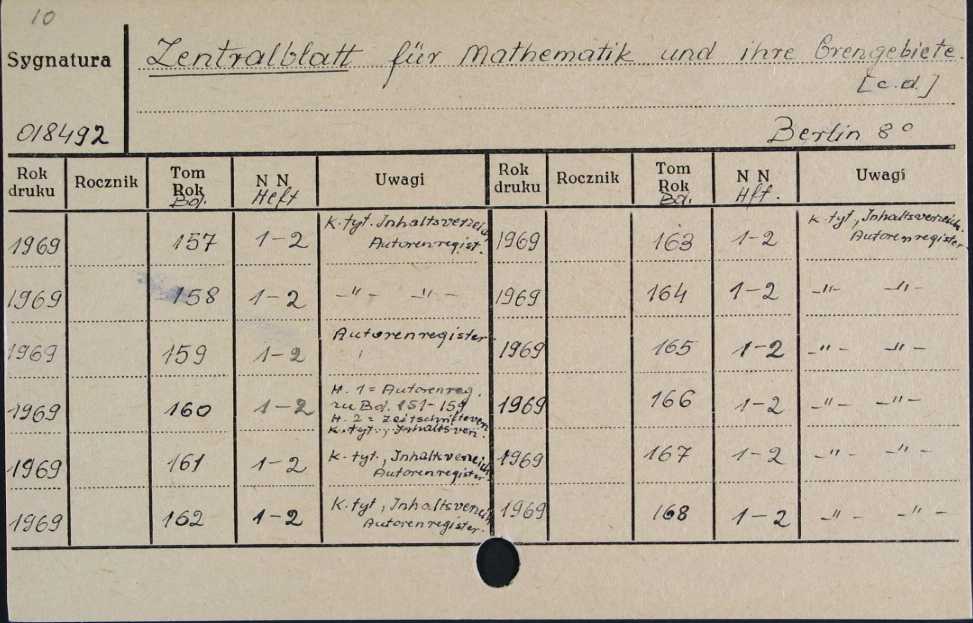 10
Sygnatura
Zentralblatt für Mathematik und ihre Grengebiete.
[c.d.]
018492
Berlin 8°
Rok druku Rocznik Tom Rok Bd. N N Heft Uwagi Rok druku Rocznik Tom Rok Bd. N N Hft. Uwagi
1969 157 1-2 K. tyt. Inhaltsverzeich. Autorenregist. 1969 163 1-2 K. tyt, Inhaltsverzeich. Autorenregister
1969 158 1-2 -"- -"- 1969 164 1-2 -"- -"-
1969 159 1-2 Autorenregister. 1969 165 1-2 -"- -"-
1969 160 1-2 H. 1 = Autorenreg. zu Bd. 151-159 H. 2 = Zeitschriftenver. K. tyt., Inhaltsver. 1969 166 1-2 -"- -"-
1969 161 1-2 K. tyt., Inhaltsverzeich. Autorenregister 1969 167 1-2 -"- -"-
1969 162 1-2 K. tyt, Inhaltsverzeich. Autorenregister. 1969 168 1-2 -"- -"-